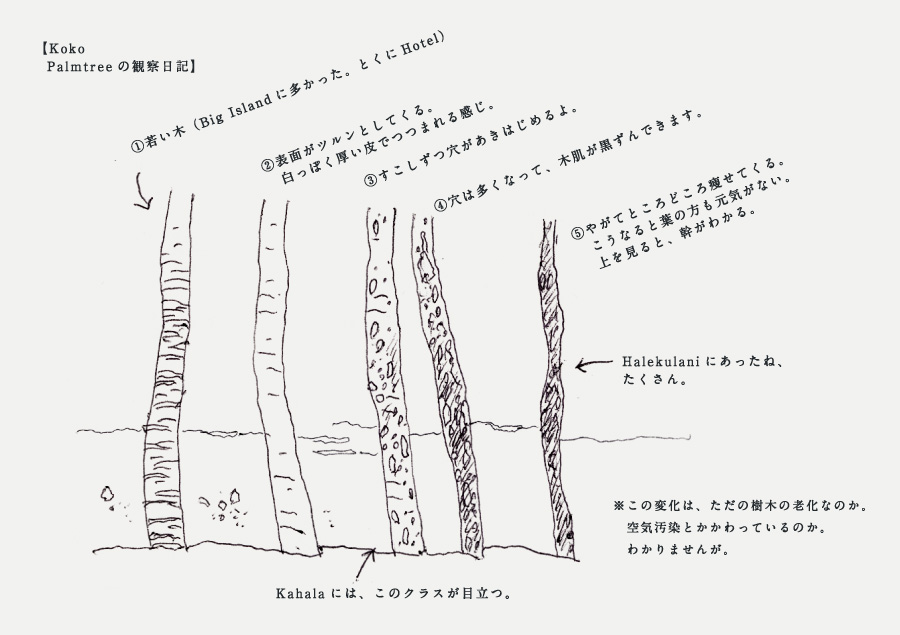 【Koko
Palmtreeの観察日記】
①若い木（Big Islandに多かった。とくにHotel）
②表面がツルンとしてくる。
白っぽく厚い皮でつつまれる感じ。
③すこしずつ穴があきはじめるよ。
④穴は多くなって、木肌が黒ずんできます。
⑤やがてところどころ痩せてくる。
こうなると葉の方も元気がない。
上を見ると、幹がわかる。
Halekulaniにあったね、
たくさん。
※この変化は、ただの樹木の老化なのか。
空気汚染とかかわっているのか。
わかりませんが。
Kahalaには、このクラスが目立つ。